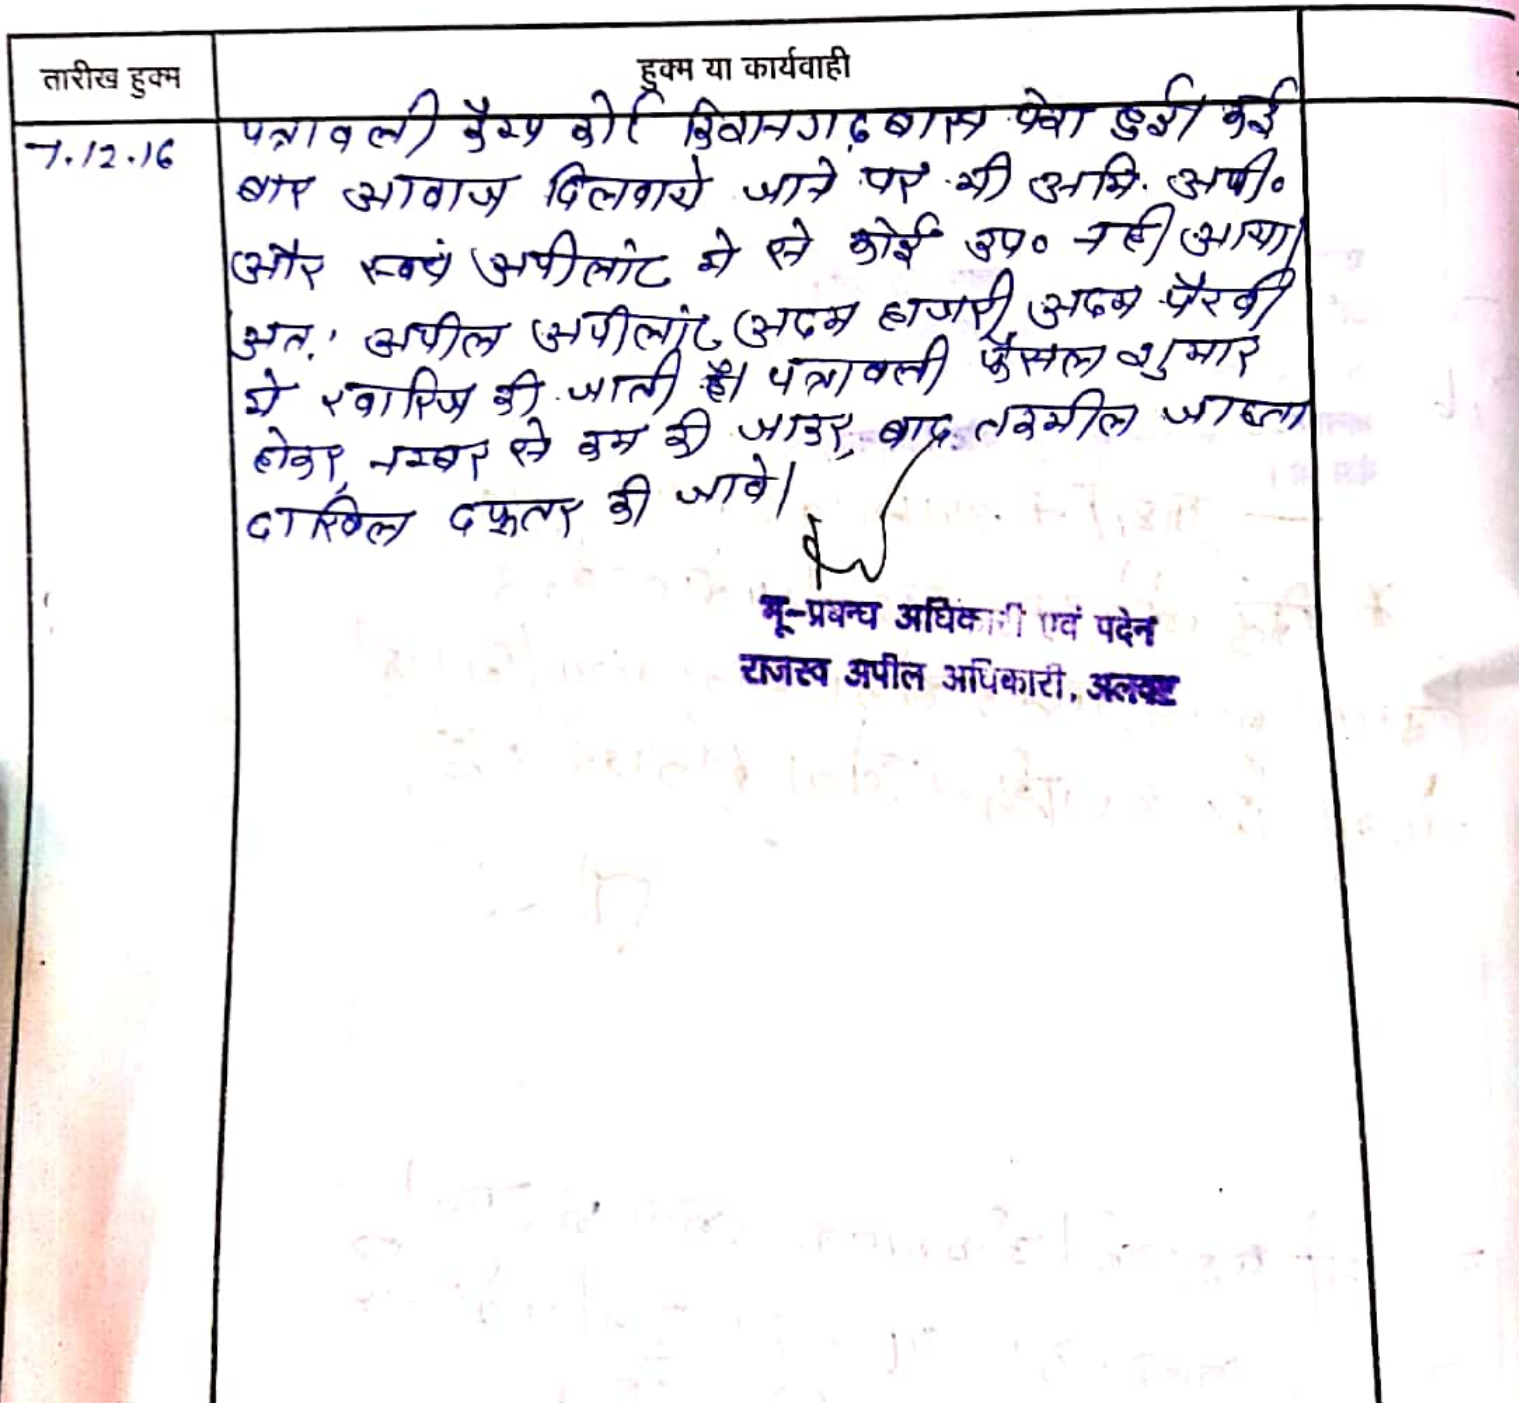 तारीख हुक्म
हुक्म या कार्यवाही
7.12.16
पत्रावली कैम्प कोर्ट किशनगढ़बास पेश हुई। कई
बार आवाज दिलवाये जाने पर भी अभि. अपी०
और स्वयं अपीलांट मे से कोई उप० नही आया।
अत: अपील अपीलांट अदम हाजरी, अदम पैरवी
मे खारिज की जाती है। पत्रावली फैसल शुमार
होकर, नम्बर से कम की जाकर, बाद तकमील जाब्ता
दाखिल दफ्तर की जावे।
भू-प्रबन्ध अधिकारी एवं पदेन
राजस्व अपील अधिकारी, अलवर